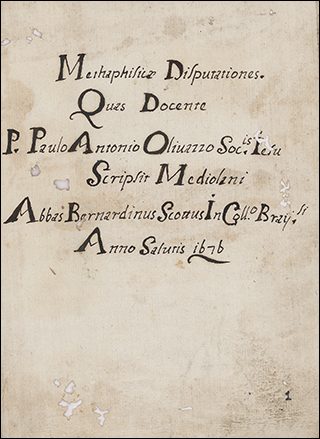 Methaphisicæ Disputationes.
Quas Docente
P. Paulo Antonio Oliuazzo Soc.is Iesu
Scripsit Mediolani
Abbas Bernardinus Scottus In Coll.o
Anno Salutis 1676
1